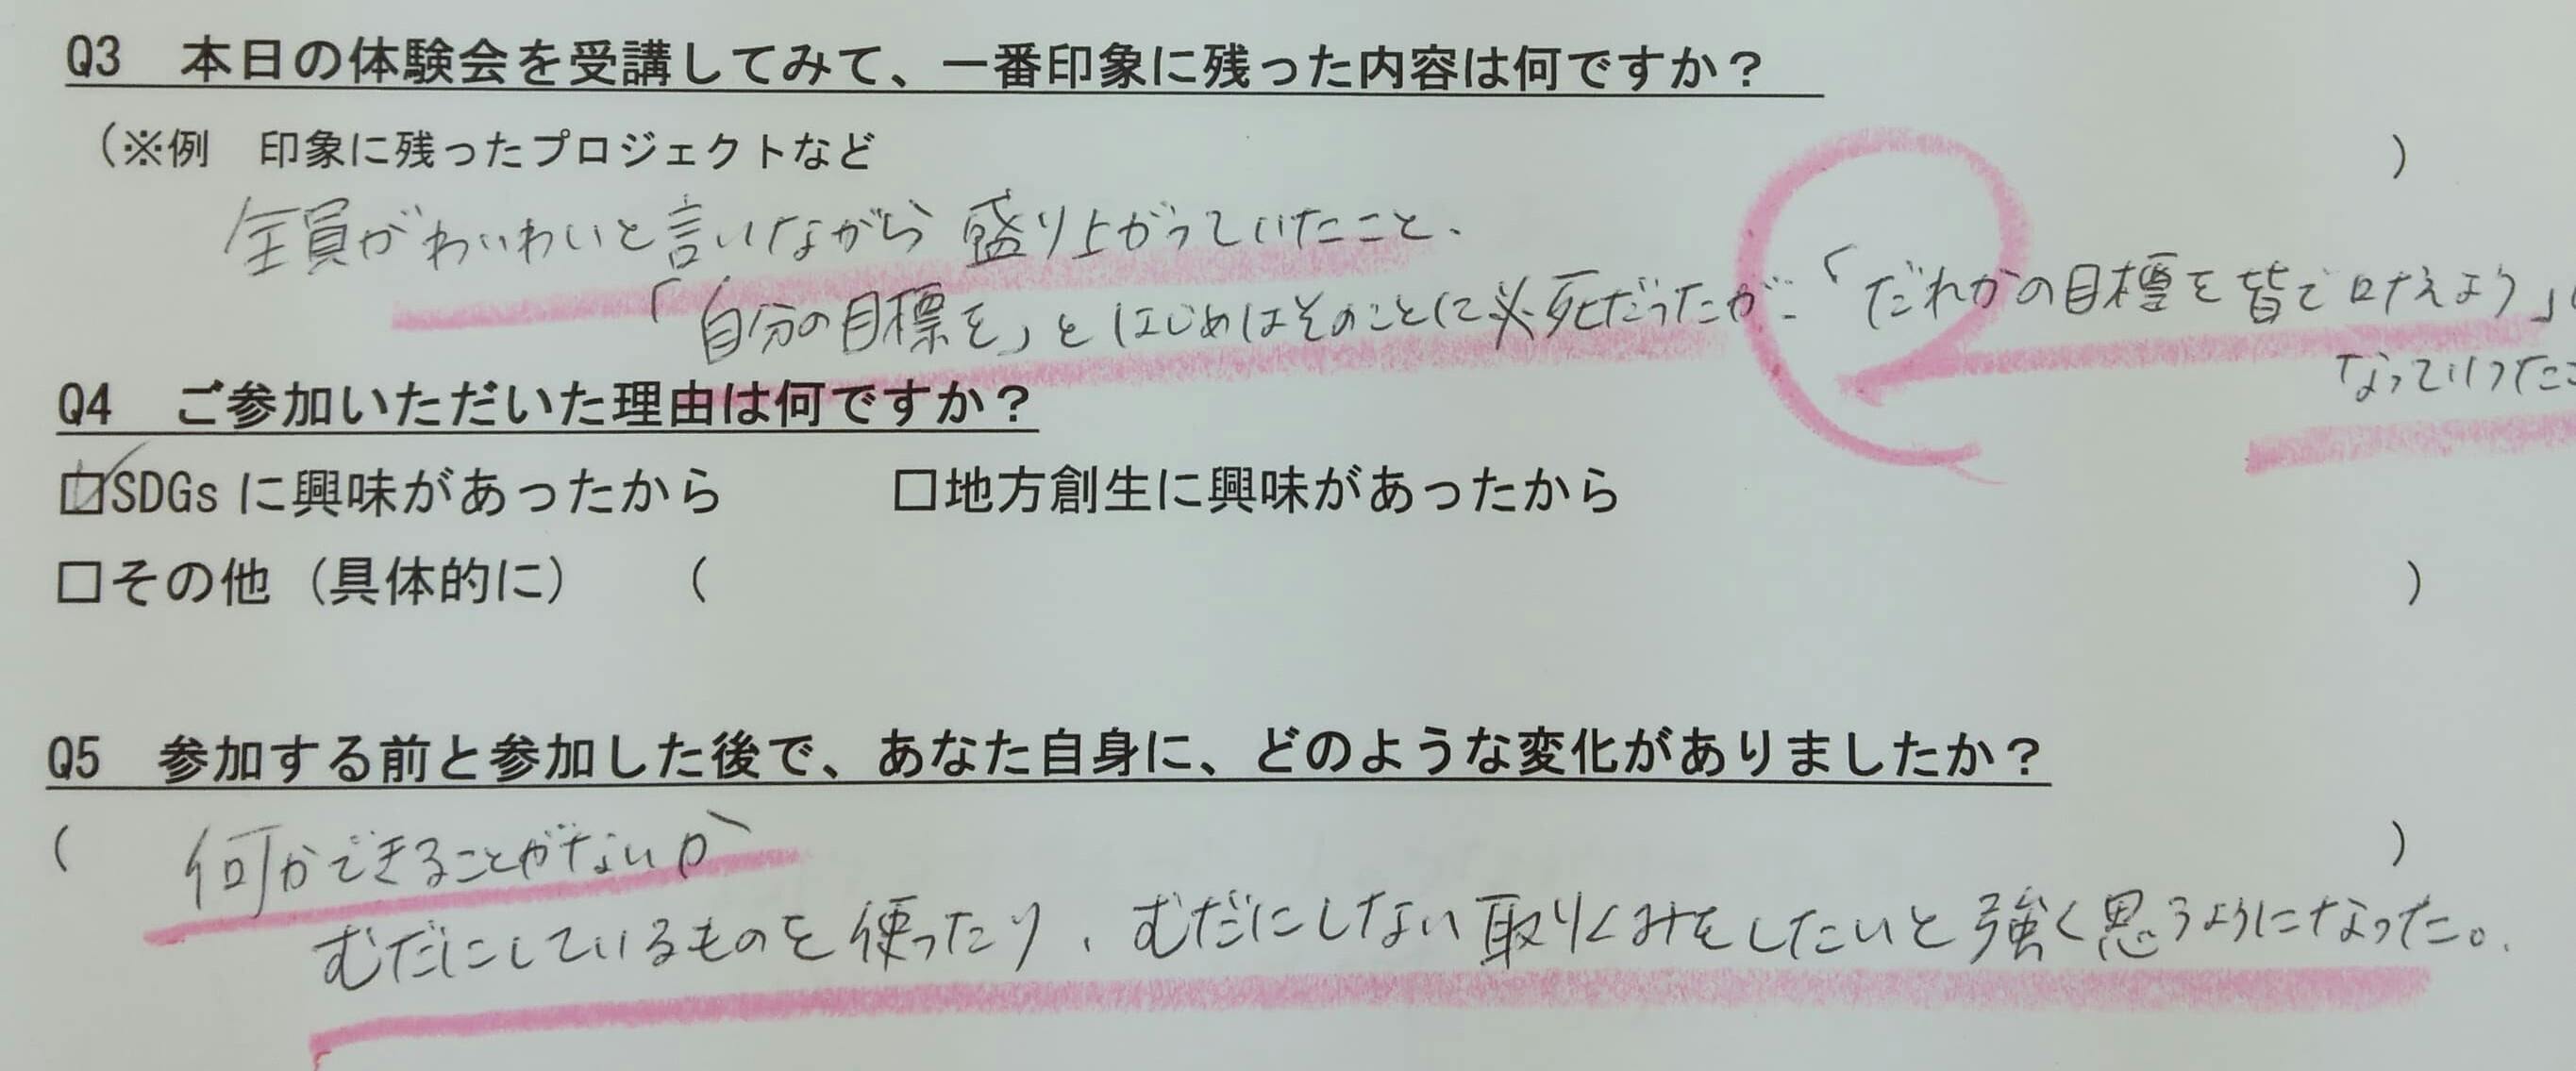 Q3　本日の体験会を受講してみて、一番印象に残った内容は何ですか？
（※例　印象に残ったプロジェクトなど　）
全員がわいわいと言いながら盛り上がっていたこと、
「自分の目標を」とはじめはそのことに必死だったが…「だれかの目標を皆で叶えよう」
なっていったこ
Q4　ご参加いただいた理由は何ですか？
☑SDGsに興味があったから　□地方創生に興味があったから
□その他（具体的に）　（　）
Q5　参加する前と参加した後で、あなた自身に、どのような変化がありましたか？
（　何かできることがないか　）
むだにしているものを使ったり、むだにしない取りくみをしたいと強く思うようになった。